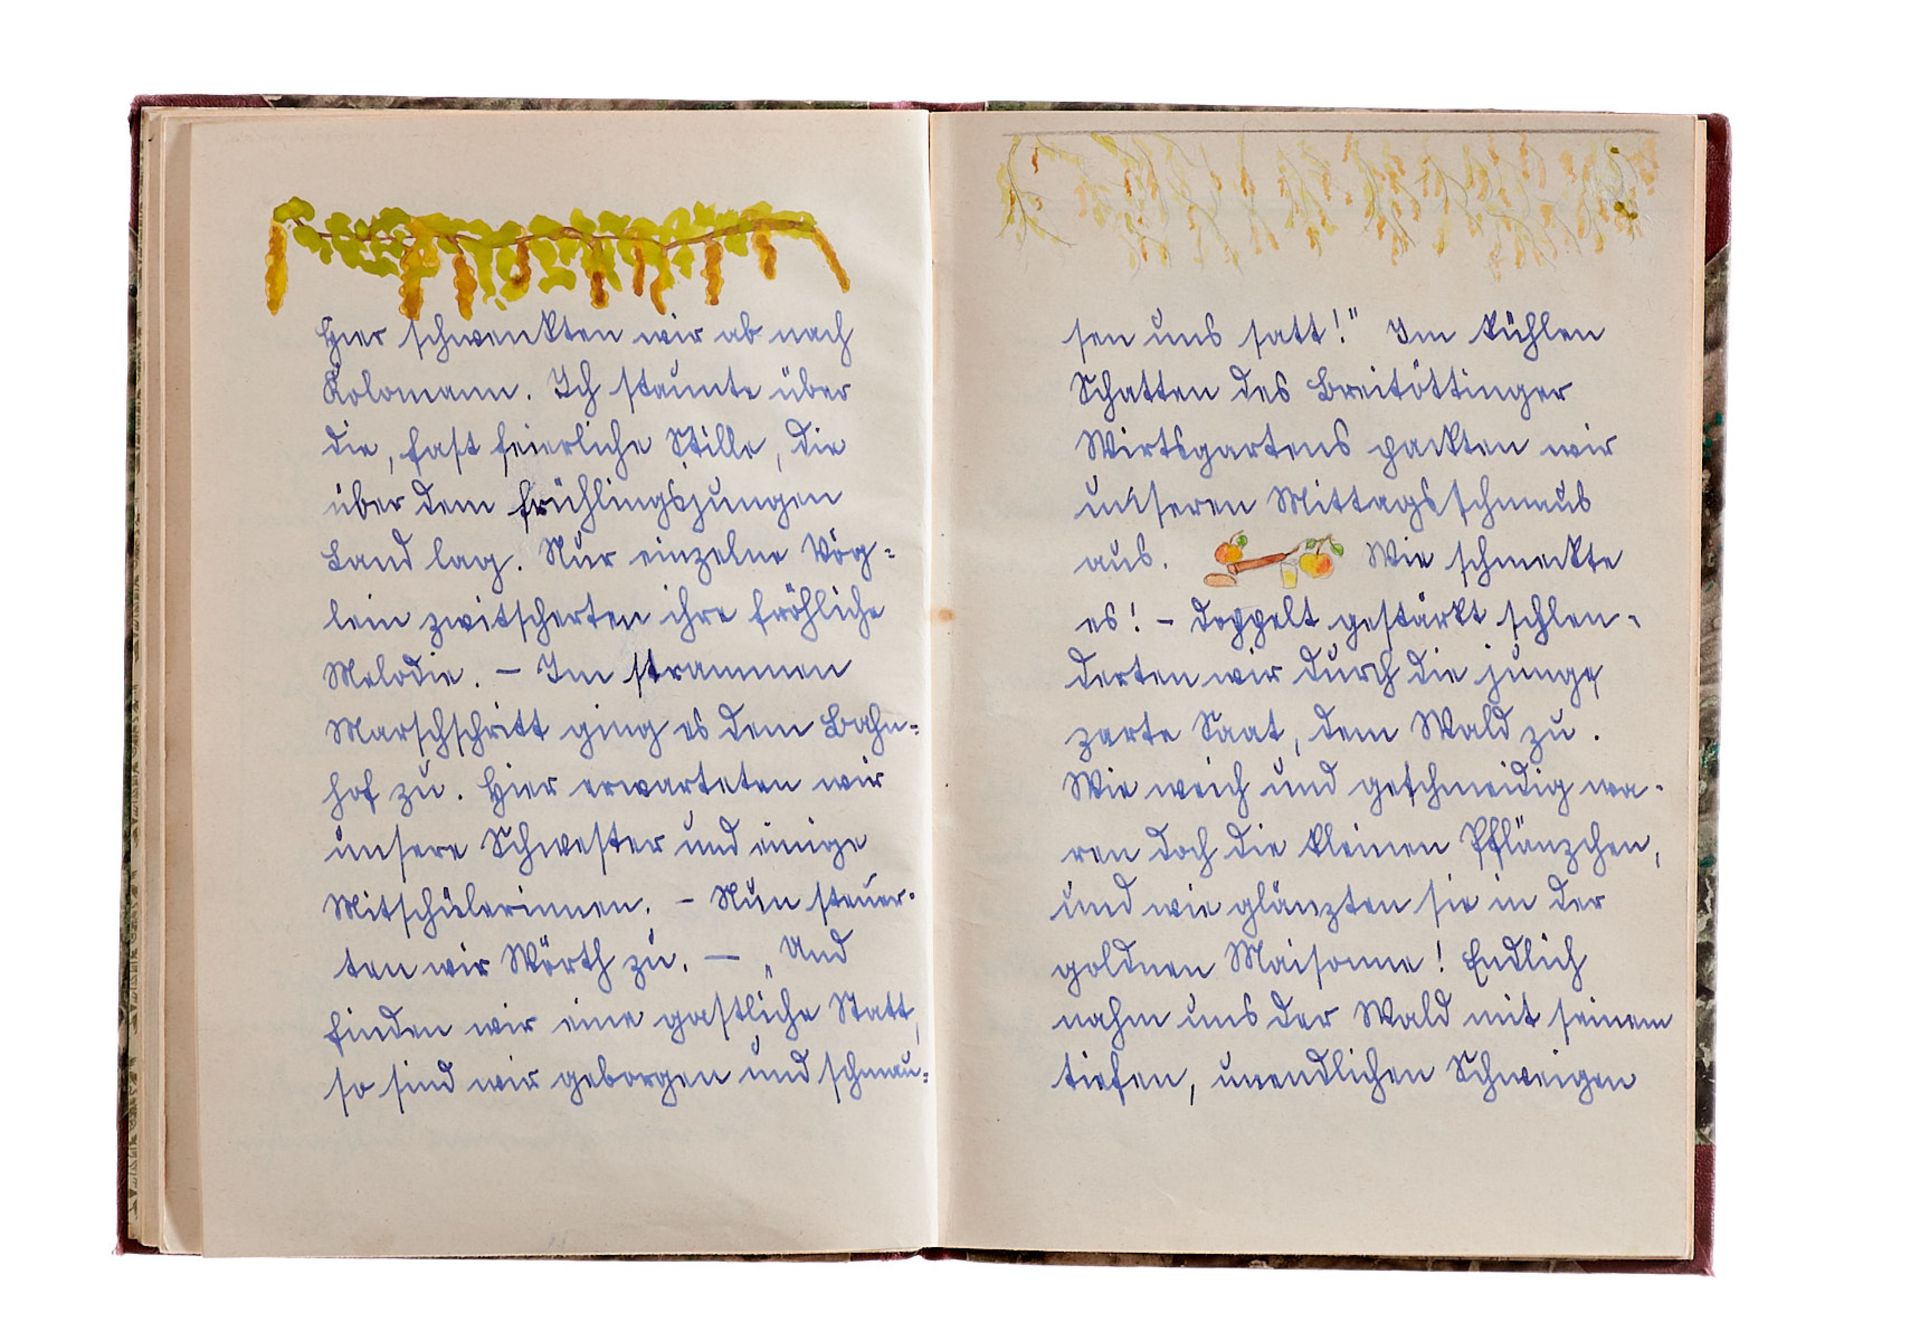 Hier schwenkten wir ab nach
Kolomann. Ich staunte über
die, fast feierliche Stille, die
über dem frühlingsjungen
Land lag. Nur einzelne Vög-
lein zwitscherten ihre fröhliche
Melodie. – Im strammen
Marschschritt ging es dem Bahn-
hof zu. Hier erwarteten wir
unsere Schwester und einige
Mitschülerinnen. – Nun steuer-
ten wir Wörth zu. – „Und
finden wir eine gastliche Statt,
so sind wir geborgen und schmau-
sen uns satt!" Im kühlen
Schatten des Breitöttinger
Wirtsgartens packten wir
unseren Mittagsschmaus
aus. Wie schmeckte
es! – Doppelt gestärkt schlen-
derten wir durch die junge,
zarte Saat, dem Wald zu.
Wie weich und geschmeidig wa-
ren doch die kleinen Pflänzchen,
und wie glänzten sie in der
goldnen Maisonne! Endlich
nahm uns der Wald mit seinem
tiefen, unendlichen Schweigen